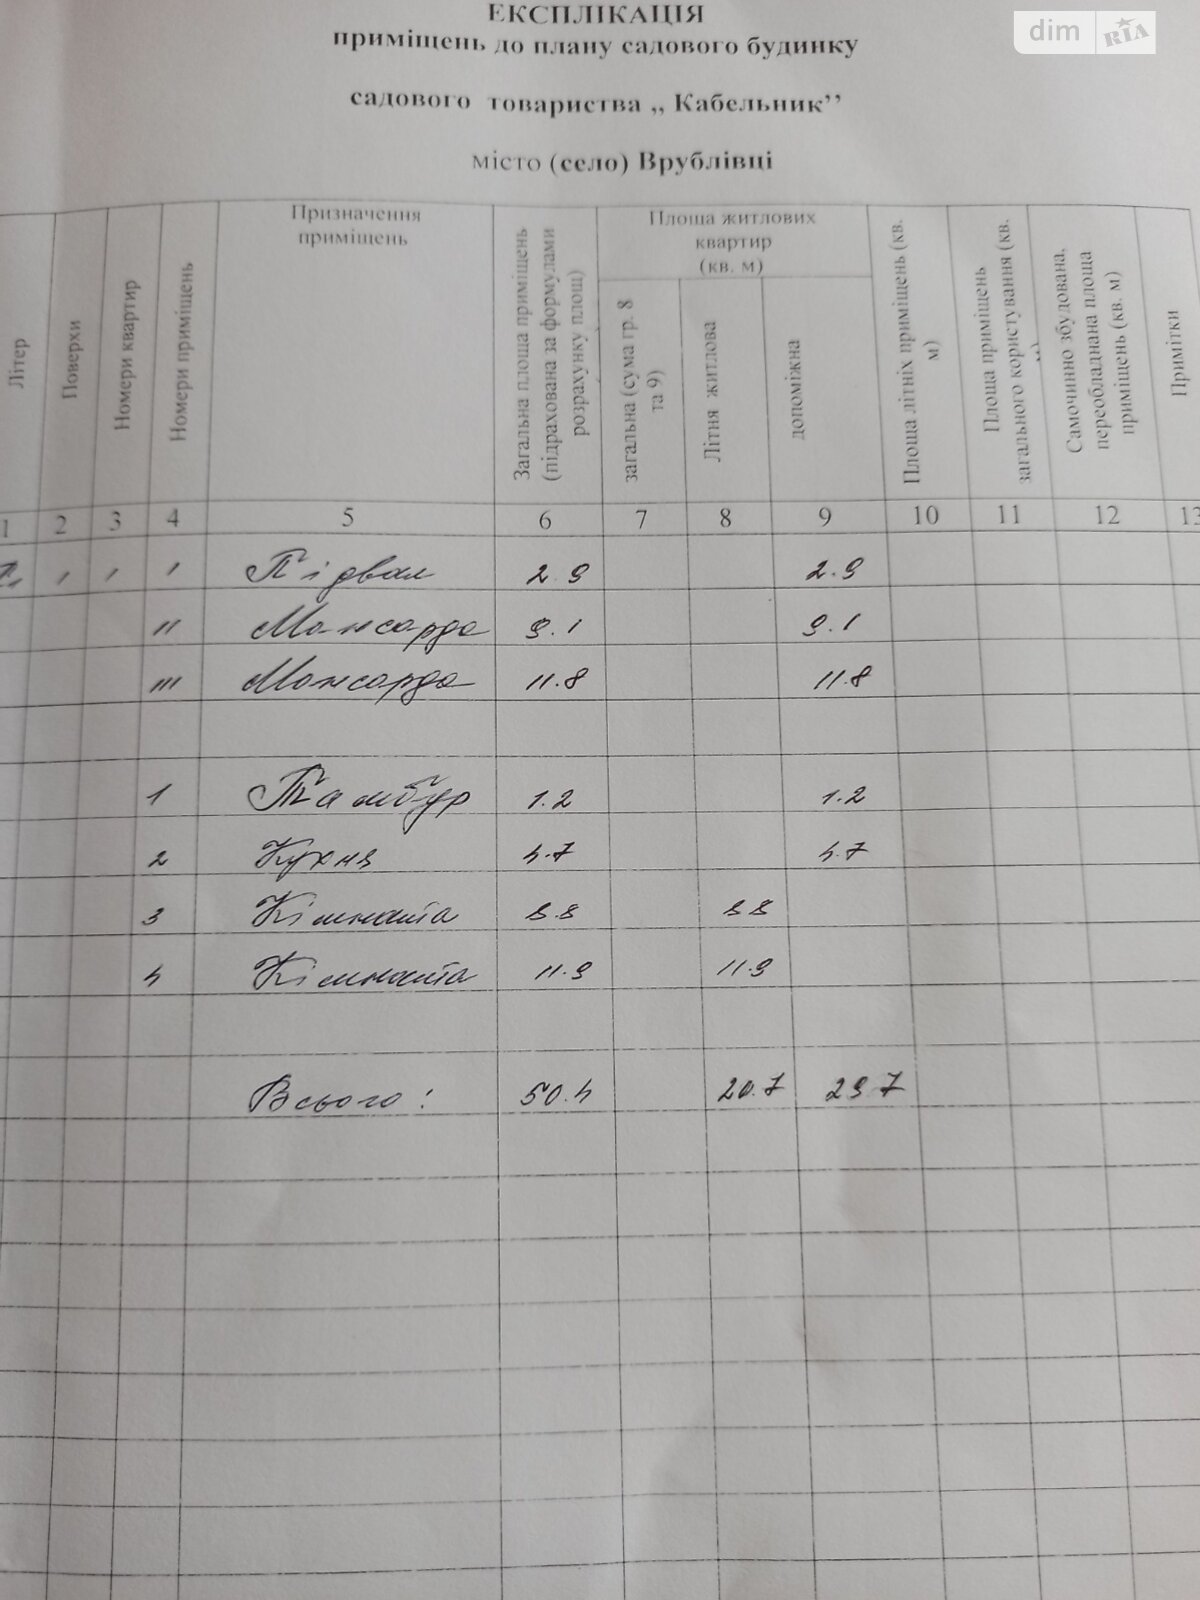 ЕКСПЛІКАЦІЯ
приміщень до плану садового будинку
садового товариства „ Кабельник’’
місто (село) Врублівці
dim RIA
Літер
Поверхи
Номери квартир
Номери приміщень
Призначення
приміщень
Загальна площа приміщень
(підрахована за формулами
розрахунку площ)
Площа житлових
квартир
(кв. м)
загальна (сума гр. 8
та 9)
Літня житлова
допоміжна
Площа літніх приміщень (кв.
м)
Площа приміщень
загального користування (кв.
Самочинно збудована,
переобладнана площа
приміщень (кв. м)
Примітки
1 2 3 4 5 6 7 8 9 10 11 12 13
І І І Підвал 2.9 2.9
ІІ Мансарда 9.1 9.1
ІІІ Мансарда 11.8 11.8
1 Тамбур 1.2 1.2
2 Кухня 4.7 4.7
3 Кімната 8.8 8.8
4 Кімната 11.9 11.9
Всього: 50.4 20.7 29.7